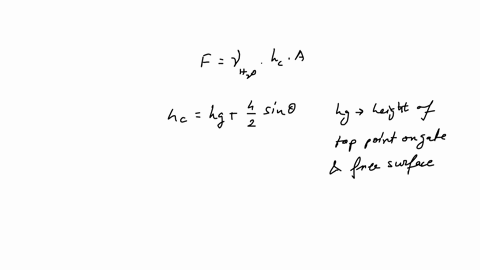 F = γ_H₂O · h_c · A
h_c = hg + h/2 sinθ
hg → height of
top point on gate
& free surface